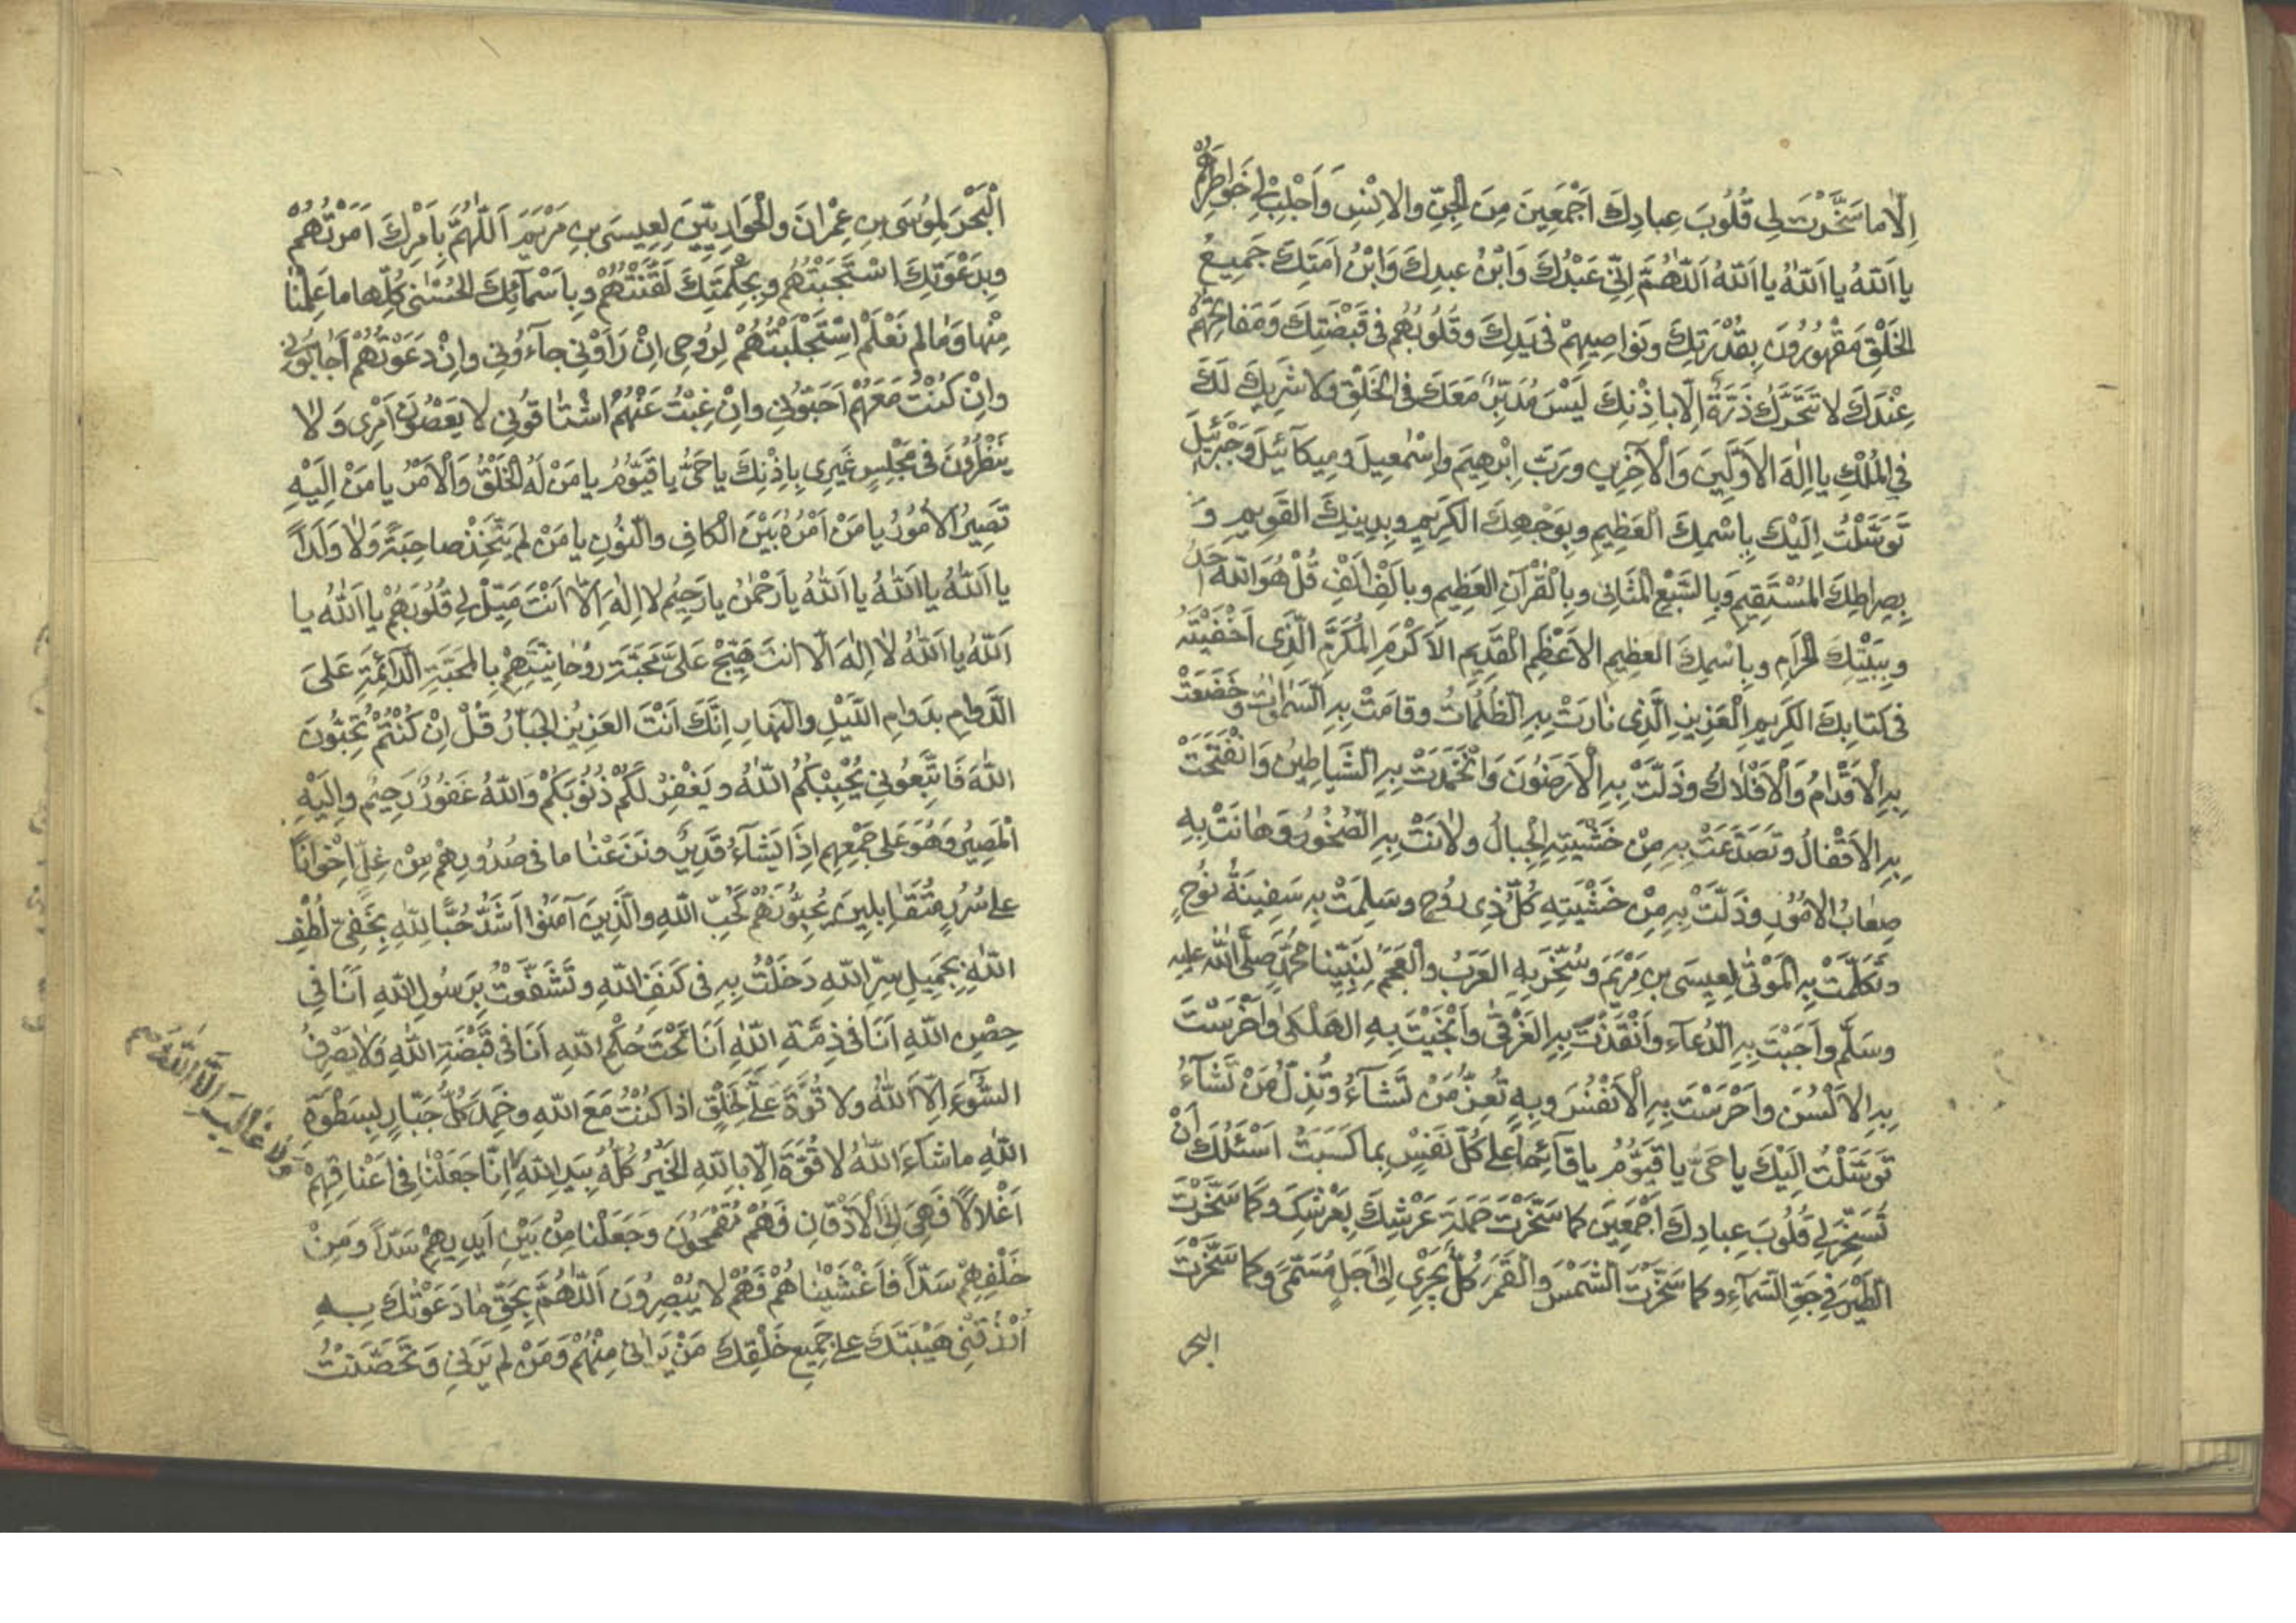 اِلّا ما سَخَّرْتَ لِي قُلُوبَ عِبادِكَ اَجْمَعِينَ مِنَ الْجِنِّ والاِنْسِ وَاَجْلِبْ لِي خَواطِرَهُمْ
يا اَللّهُ يا اَللّهُ يا اَللّهُ اَللّهُمَّ اِنِّي عَبْدُكَ وَابْنُ عبدِكَ وَابْنُ اَمَتِكَ جَمِيعُ
الخَلْقِ مَقْهُورُونَ بِقُدْرَتِكَ ونَواصِيهِمْ فى يَدِكَ وقُلُوبُهُم فى قَبْضَتِكَ وَمَفاتِحُهُمْ
عِنْدَكَ لا تَتَحَرَّكُ ذَرَّةٌ اِلّا بِاِذْنِكَ لَيْسَ مُدَبِّرٌ مَعَكَ فى الخَلْقِ ولا شَرِيكَ لَكَ
فِي المُلْكِ يا اِلٰهَ الاَوَّلِينَ وَالْآخِرِينَ ورَبَّ اِبْرٰهِيمَ واِسْمٰعِيلَ ومِيكآئِيلَ وَجَبْرَئِيلَ
تَوَسَّلْتُ اِلَيْكَ بِاسْمِكَ العَظِيمِ وبِوَجْهِكَ الكَرِيمِ وبِدِينِكَ القَوِيمِ وَ
بِصِراطِكَ المُسْتَقِيمِ وَبِالسَّبْعِ الْمَثَانِى وبِالْقُرْآنِ العَظِيمِ وبِاَلْفِ اَلْفِ قُلْ هُوَ اللّهُ اَحَدٌ
وبِبَيْتِكَ الحَرامِ وبِاسْمِكَ العظِيمِ الاَعْظَمِ القَدِيمِ الاَكْرَمِ المُكَرَّمِ الَّذِى اَخْفَيْتَهُ
فى كتابِكَ الكَرِيمِ الْعَزِيزِ الَّذِى نٰارَتْ بِهِ الظُّلُمٰاتُ وقامَتْ بِهِ السَّمٰواتُ وخَضَعَتْ
بِهِ الْاَقْدامُ وَالْاَفْلاكُ وذَلَّتْ بِهِ الْاَرَضُونَ وَانْخَمَدَتْ بِهِ الشَّياطِينُ وَانْفَتَحَتْ
بِهِ الاَقْفالُ وتَصَدَّعَتْ بِهِ مِنْ خَشْيَتِهِ الْجِبالُ ولانَتْ بِهِ الصُّخُورُ وَهانَتْ بِهِ
صِعٰابُ الامُورِ وذَلَّتْ بِهِ مِنْ خَشْيَتِهِ كُلُّ ذِى رُوحٍ وسَلِمَتْ بِهِ سَفِينَةُ نُوحٍ
وتَكَلَّمَتْ بِهِ الْمَوْتٰى لِعِيسَى بنِ مَرْيَمَ وسُخِّرَ بِهِ العَرَبُ والْعَجَمُ لِنَبِيِّنا مُحَمَّدٍ صَلَّى اللّٰهُ عليه
وسَلَّم واَجَبْتَ بِهِ الدُّعآءَ وَاَنْقَذْتَ بِهِ الغَرْقٰى واَنْجَيْتَ بِهِ الهَلْكٰى واَخْرَسْتَ
بِهِ الاَلْسُنَ واَحْرَسْتَ بِهِ الْاَنْفُسَ وبِهِ تُعِزُّ مَنْ تَشآءُ وتُذِلُّ مَنْ تَشآءُ
تَوَسَّلْتُ اِلَيْكَ يا حَىُّ يا قَيُّومُ يا قآئِماً على كُلِّ نَفْسٍ بِما كَسَبَتْ اَسْئَلُكَ اَنْ
تُسَخِّرَ لِي قُلُوبَ عِبادِكَ اَجْمَعِينَ كما سَخَّرْتَ حَمَلَةَ عَرْشِكَ بِعَرْشِكَ وكَما سَخَّرْتَ
الطَّيْرَ فِي جَوِّ السَّمآءِ وكما سَخَّرْتَ الشَّمْسَ والْقَمَرَ كُلٌّ يَجْرِي اِلٰى اَجَلٍ مُسَمًّى وكما سَخَّرْتَ
البحر
الْبَحْرَ لِمُوسَى بنِ عِمْرانَ والْحَوارِيِّينَ لِعِيسَى بنِ مَرْيَمَ اَللّٰهُمَّ بِاَمْرِكَ اَمَرْتُهُمْ
وبِدَعْوَتِكَ اسْتَجَبْتُهُم وبِحِكْمَتِكَ لَقَّنْتُهُمْ وبِاَسْمآئِكَ الحُسْنٰى كُلِّها ما عَلِمْنٰا
مِنْها وَمٰا لم نَعْلَمْ اِسْتَجْلَبْتُهُمْ لِرُوحِى اِنْ رَاَوْنِى جآءُونِى واِنْ دَعَوْتُهُمْ اَجابُونِى
واِنْ كُنْتُ مَعَهُمْ اَحَبُّونِى واِنْ غِبْتُ عَنْهُمْ اشْتٰاقُونِى لا يَعْصُونَ اَمْرِى وَلٰا
يَنْظُرُونَ فى مَجْلِسٍ غَيْرِى بِاِذْنِكَ يا حَىُّ يا قَيُّومُ يا مَنْ لَهُ الْخَلْقُ وَالْاَمْرُ يا مَنْ اِلَيْهِ
تَصِيرُ الاُمُورُ يا مَنْ اَمْرُهُ بَيْنَ الْكافِ والنُّونِ يا مَنْ لم يَتَّخِذْ صاحِبَةً وَلٰا وَلَداً
يا اَللّٰهُ يا اَللّٰهُ يا اَللّٰهُ يا رَحْمٰنُ يا رَحِيمُ لا اِلٰهَ اِلّا اَنْتَ مَيِّلْ لِي قُلُوبَهُمْ يا اَللّٰهُ يا
اَللّٰهُ يا اَللّٰهُ لٰا اِلٰهَ اِلّا اَنتَ هَيِّجْ عَلَىَّ مَحَبَّةَ رُوحانِيَّتِهِمْ بِالمَحَبَّةِ الدّآئِمَةِ عَلىَ
الدَّوامِ بِدَوامِ اللَّيْلِ والنَّهارِ اِنَّكَ اَنْتَ العَزِيزُ الجَبّارُ قُلْ اِنْ كُنْتُمْ تُحِبُّونَ
اللّٰهَ فَاتَّبِعُونِى يُحْبِبْكُمُ اللّٰهُ ويَغْفِرْ لَكُمْ ذُنُوبَكُمْ وَاللّٰهُ غَفُورٌ رَحِيمٌ واِلَيْهِ
الْمَصِيرُ وَهُوَ عَلى جَمْعِهِم اِذَا يَشآءُ قَدِيرٌ ونَزَعْنٰا ما فى صُدُورِهِمْ مِنْ غِلٍّ اِخْوٰاناً
على سُرُرٍ مُتَقٰابِلِينَ يُحِبُّونَهُمْ كَحُبِّ اللّٰهِ والَّذِينَ آمَنُوا اَشَدُّ حُبًّا لِلّٰهِ بِخَفِىِّ لُطْفِ
اللّٰهِ بِجَمِيلِ سِرِّ اللّٰهِ دَخَلْتُ بِهِ فى كَنَفِ اللّٰهِ وتَشَفَّعْتُ بِرَسُولِ اللّٰهِ اَنَا فِى
حِصْنِ اللّٰهِ اَنَا فى ذِمَّةِ اللّٰهِ اَنَا تَحْتَ حُكْمِ اللّٰهِ اَنَا فى قَبْضَةِ اللّٰهِ وَلٰا يَصْرِفُ
السُّوءَ اِلّا اللّٰهُ ولا قُوَّةَ على الخَلْقِ اذا كُنْتُ مَعَ اللّٰهِ وخَمِدَ كُلُّ جَبّارٍ لِسَطْوَةِ
وَلا غالِبَ اِلَّا اللّٰهُ
اللّٰهِ ماشآءَ اللّٰهُ لا قُوَّةَ اِلّا بِاللّٰهِ الخَيْرُ كُلُّهُ بِيَدِ اللّٰهِ اِنّا جَعَلْنٰا فِى اَعْناقِهِمْ
اَغْلالاً فَهِىَ اِلَى الْاَذْقانِ فَهُمْ مُقْمَحُونَ وَجَعَلْنا مِنْ بَيْنِ اَيدِيهِمْ سَدّاً ومِنْ
خَلْفِهِمْ سَدّاً فَاَغْشَيْنٰاهُمْ فَهُمْ لا يُبْصِرُونَ اَللّٰهُمَّ بِحَقِّ مٰا دَعَوْتُكَ بِهِ
اُرْزُقْنِى هَيْبَتَكَ على جَمِيعِ خَلْقِكَ مَنْ يَرانى مِنْهُمْ وَمَنْ لم يَرَنِى وَتَحَصَّنْتُ